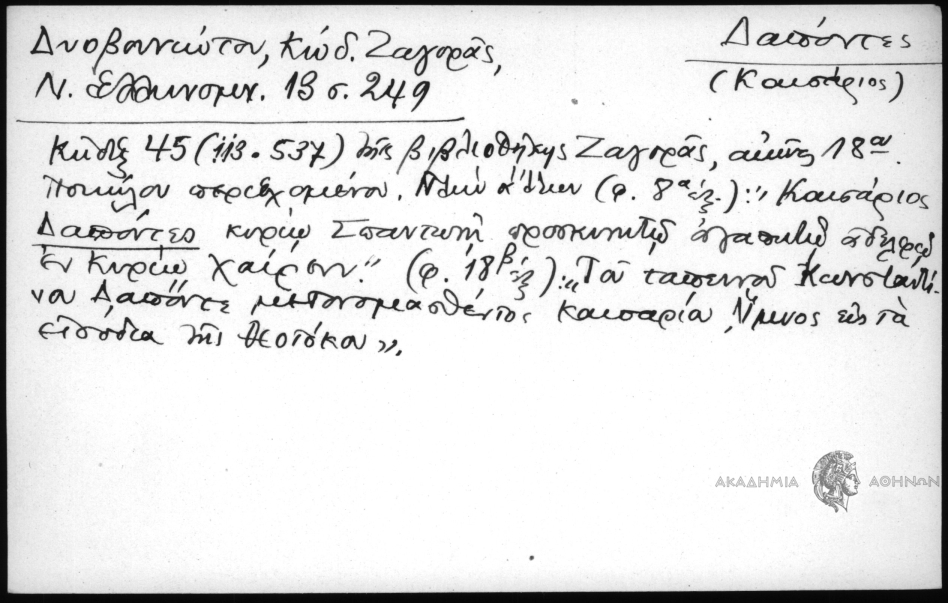 Δυοβουνιώτου, Κώδ. Ζαγορᾶς,
Ν. Ἑλληνομν. 13 σ. 249
Δαπόντες
(Καισάριος)
Κῶδιξ 45 (113·537) τῆς βιβλιοθήκης Ζαγορᾶς, αἰῶνος 18ου.
Ποικίλου περιεχομένου. Μεταξὺ ἄλλων (φ. 8α ἑξ.): „Καισάριος
Δαπόντες κυρίῳ Σπαντωνῆ προσκυνητῷ ἀγαπητῷ ἀδελφῷ
ἐν Κυρίῳ χαίρειν.” (φ. 18β ἑξ.): „Τοῦ ταπεινοῦ Κωνσταντί-
νου Δαπόντε μετονομασθέντος Καισαρίου, Ὕμνος εἰς τὰ
εἰσόδια τῆς Θεοτόκου”.
ΑΚΑΔΗΜΙΑ ΑΘΗΝΩΝ